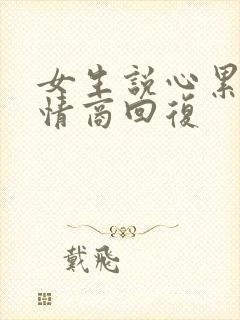 女生說心累
情商回復
戴飛